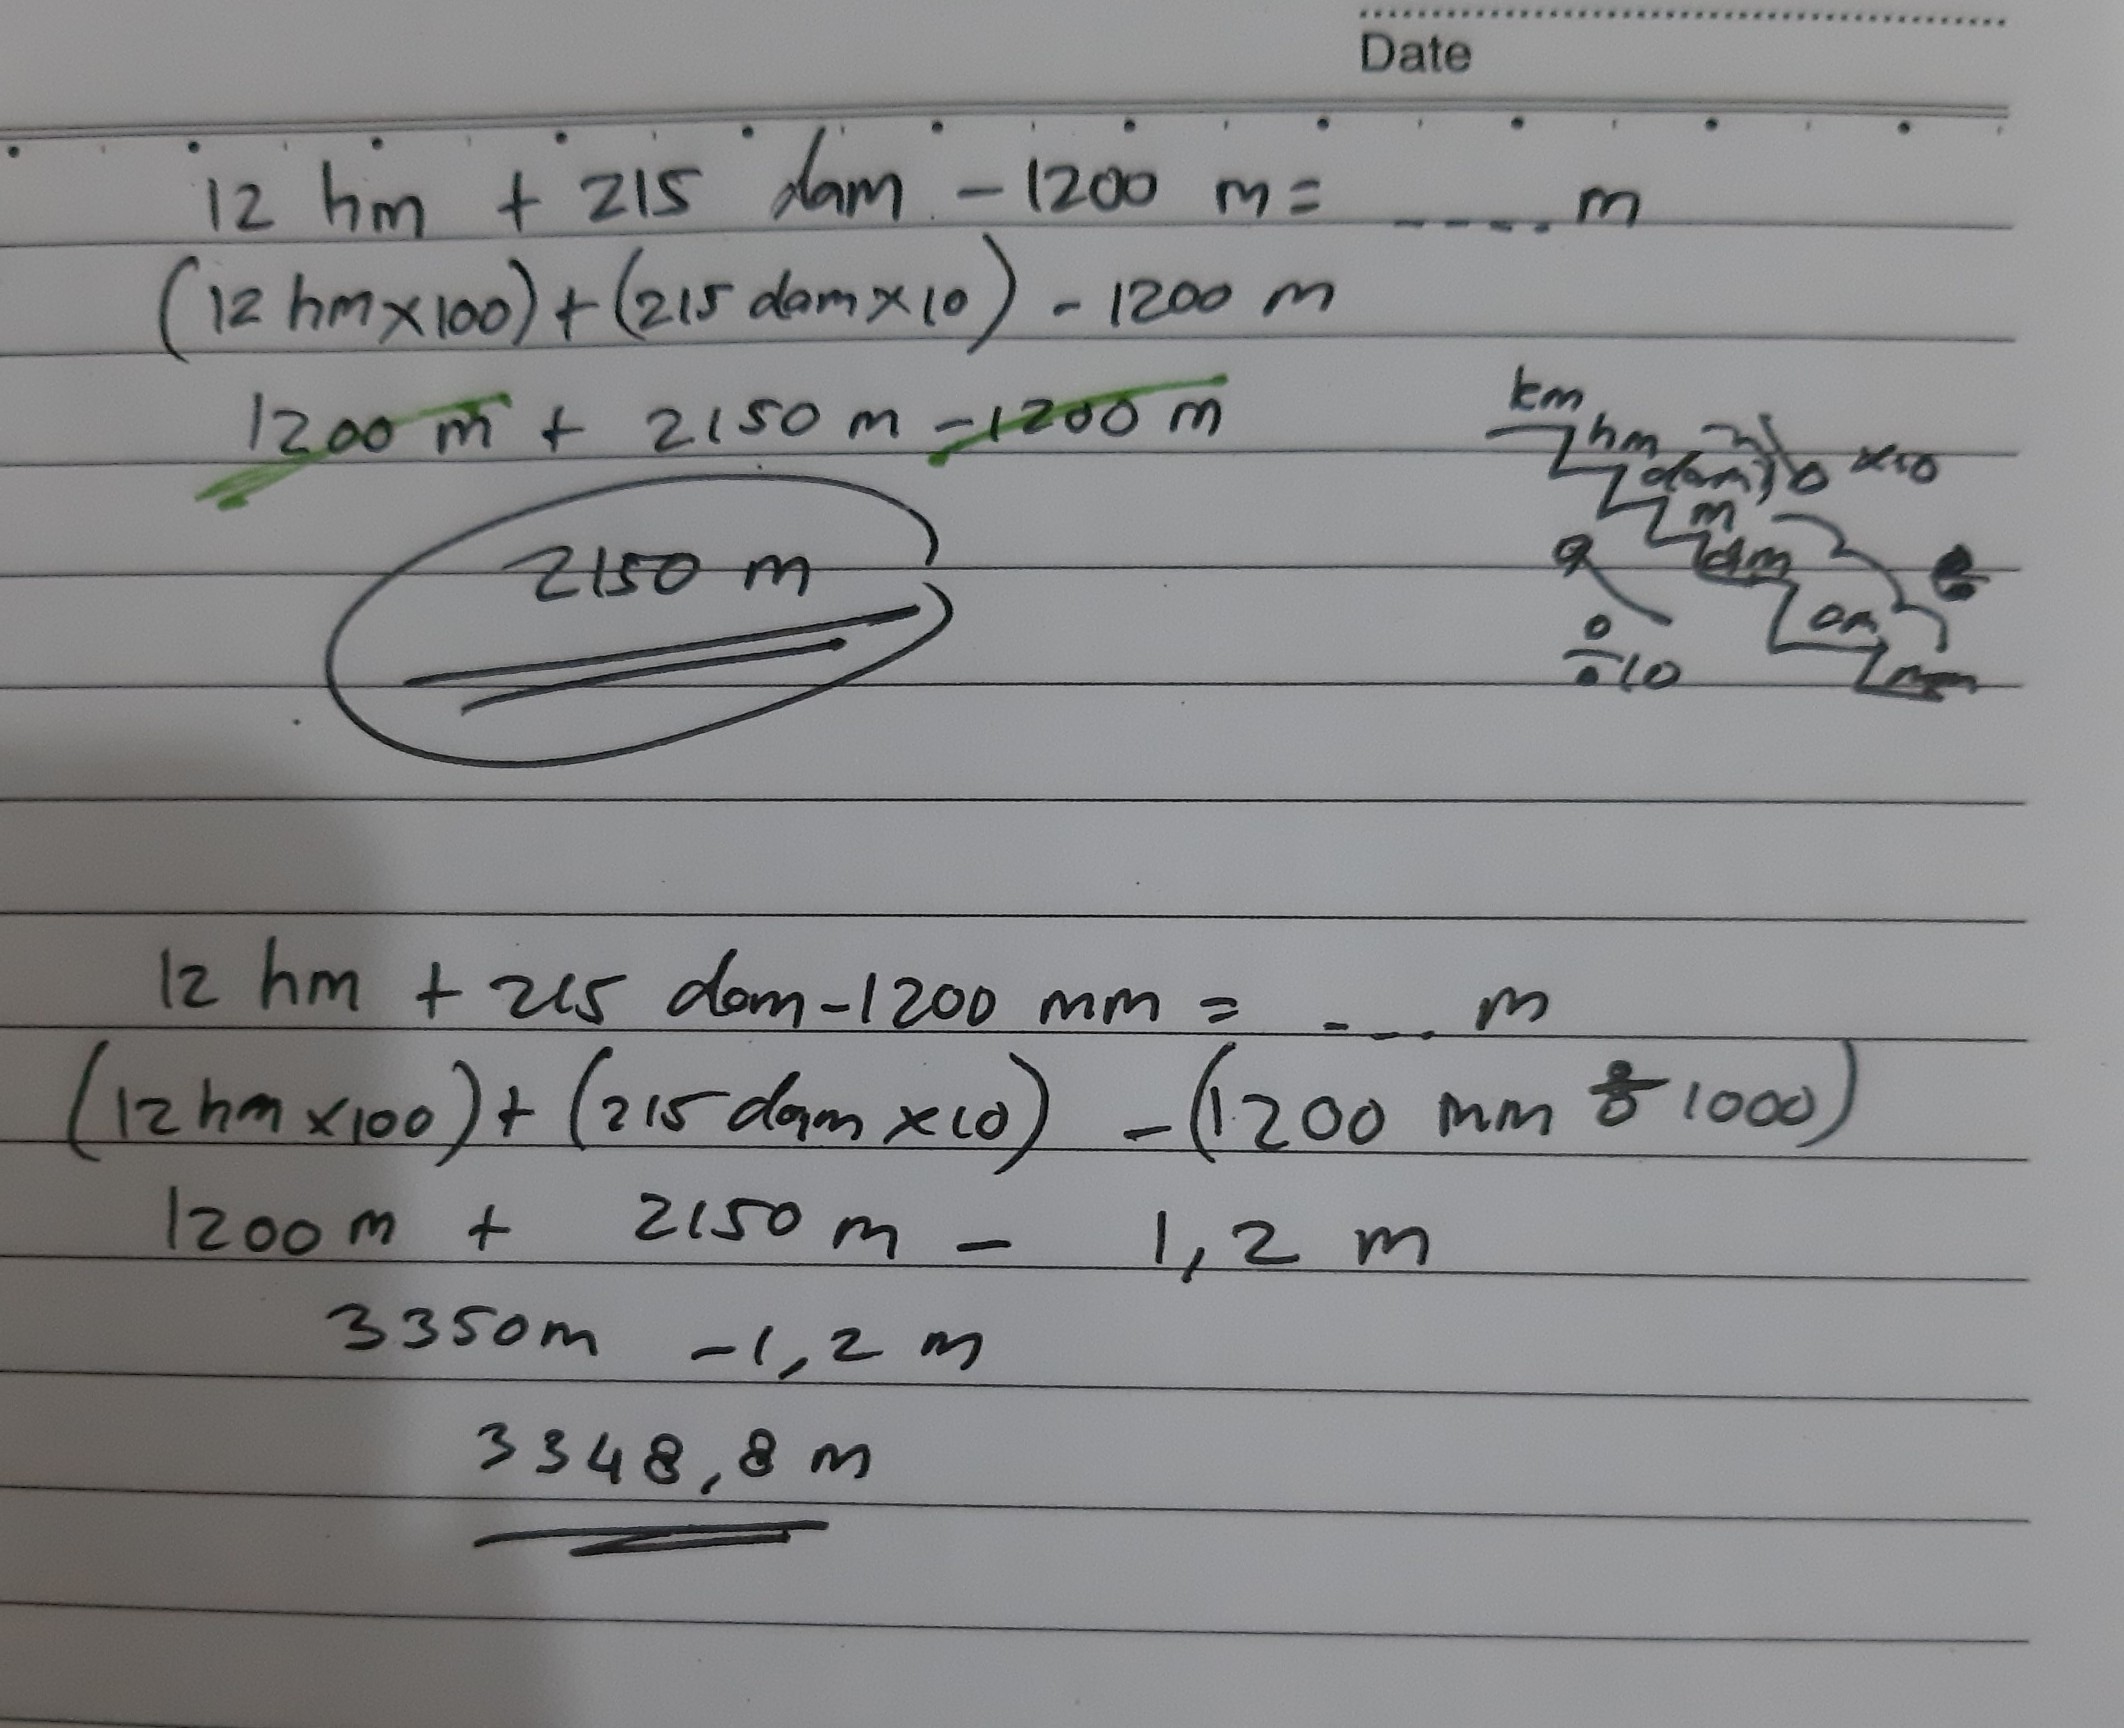 Date
12 hm + 215 dam - 1200 m = .... m
(12 hm x 100) + (215 dam x 10) - 1200 m
1200 m + 2150 m - 1200 m
2150 m
km
hm
dam x10
m
dm
cm
mm
÷10
12 hm + 215 dam - 1200 mm = .... m
(12 hm x 100) + (215 dam x 10) - (1200 mm ÷ 1000)
1200 m + 2150 m - 1,2 m
3350 m - 1,2 m
3348,8 m